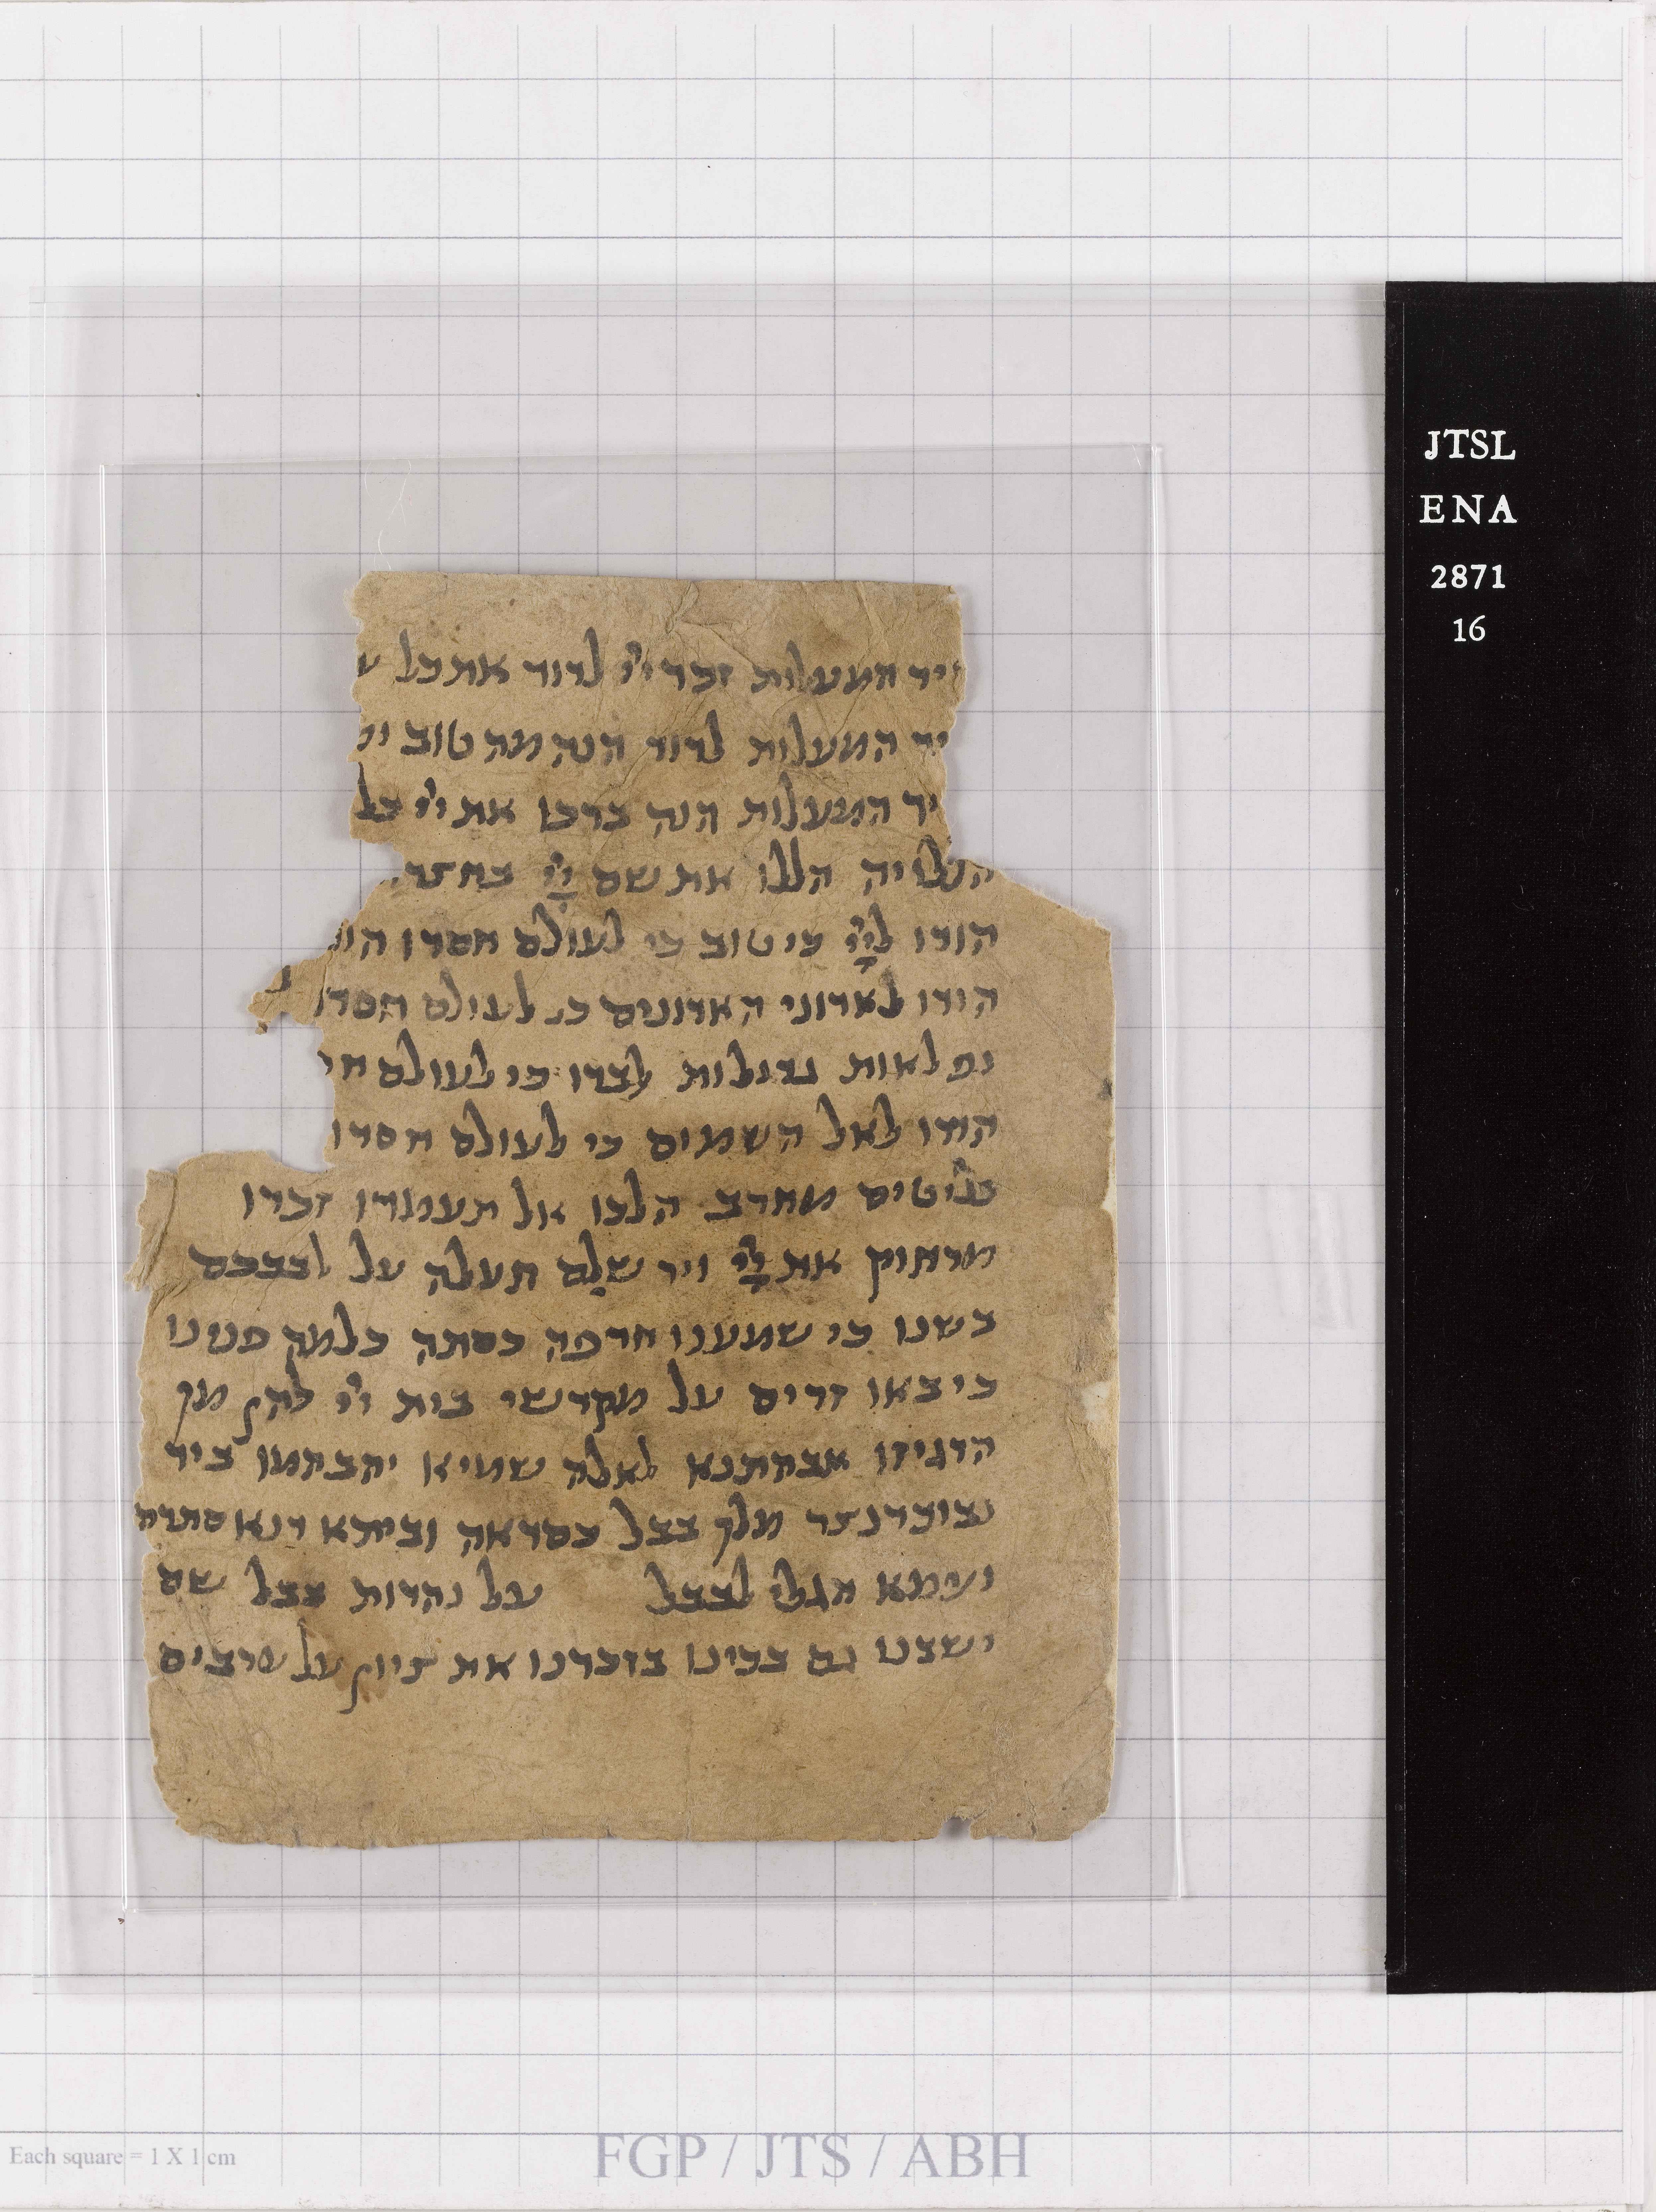 שיר המעלות זכר ייי לדוד את כל ע
יר המעלות לדוד הנה מה טוב ומ
יר המעלות הנה ברכו את ייי כל
הללויה הללו את שם ייי בחצר
הודו לייי כי טוב כי לעולם חסדו הוד
הודו לאדוני האדונים כי לעולם חסדו ל
נפלאות גדולות לבדו כי לעולם חס
הודו לאל השמים כי לעולם חסדו
פליטים מחרב הלכו אל תעמודו זכרו
מרחוק את ייי וירושלם תעלה על לבבכם
בשנו כי שמענו חרפה כסתה כלמה פנינו
כי באו זרים על מקדשי בית ייי להן מן
הרגיזו אבהתנא לאלה שמיא יהב המו ביד
נבוכדנצר מלך בבל כסדאה וביתא דנא סתרה
ועמא הגלי לבבל על נהרות בבל שם
ישבנו גם בכינו בזכרנו את ציון על ערבים
JTSL
ENA
2871
16
Each square = 1 X 1 cm
FGP / JTS / ABH